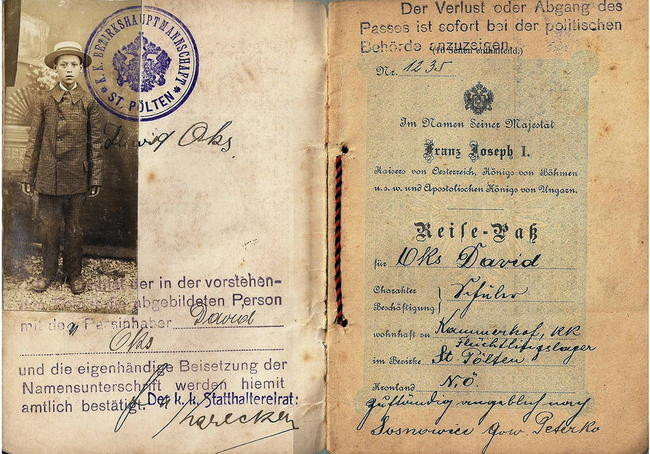 K. K. BEZIRKSHAUPTMANNSCHAFT
ST. PÖLTEN
David Oks
der in der vorstehen-
abgebildeten Person
mit dem Passinhaber David
Oks
und die eigenhändige Beisetzung der
Namensunterschrift werden hiemit
amtlich bestätigt. Der k. k. Statthaltereirat:
Der Verlust oder Abgang des
Passes ist sofort bei der politischen
Behörde anzuzeigen.
Seiten enthaltend.)
Nr. 1235
Im Namen Seiner Majestät
Franz Joseph I.
Kaisers von Oesterreich, Königs von Böhmen
u. s. w. und Apostolischen Königs von Ungarn.
Reise-Paß
für Oks David
Charakter
Beschäftigung
Schüler
wohnhaft zu Kammerhof,
Flüchtlingslager
im Bezirke St Pölten
Kronland N.Ö.
zuständig angeblich nach
Sosnowice Gow.